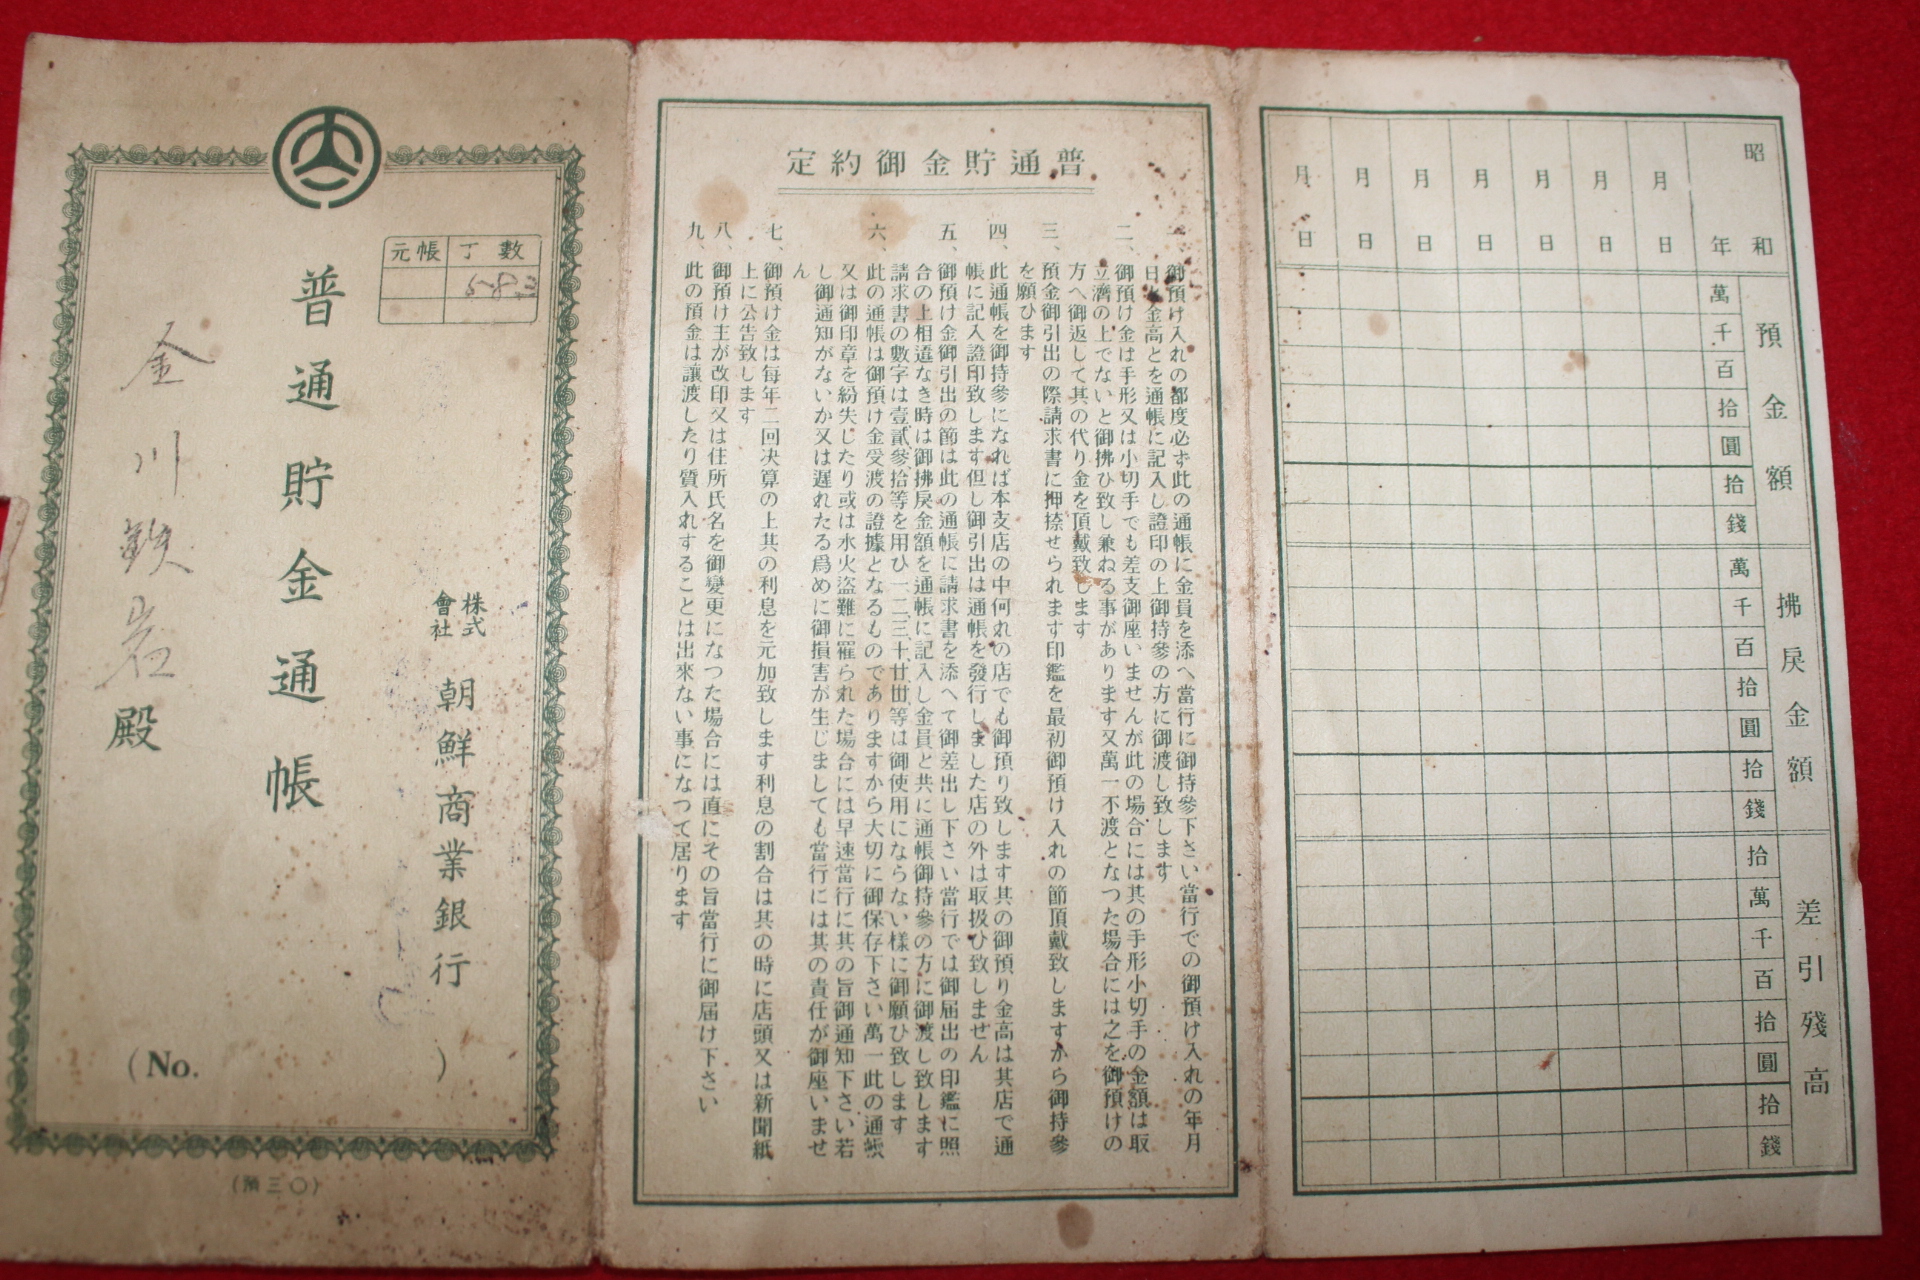 普通貯金通帳
元帳
丁數
583
株式會社
朝鮮商業銀行
金川
岩
殿
(No. )
(預三〇)
普通貯金御約定
一、御預け入れの都度必ず此の通帳に金員を添へ當行に御持參下さい當行での御預け入れの年月
日と金高とを通帳に記入し證印の上御持參の方に御渡し致します
二、御預け金は手形又は小切手でも差支御座いませんが此の場合には其の手形小切手の金額は取
立濟の上でないと御拂ひ致し兼ねる事があります又萬一不渡となつた場合には之を御預けの
方へ御返して其の代り金を頂戴致します
三、預金御引出の際請求書に押捺せられます印鑑を最初御預け入れの節頂戴致しますから御持參
を願ひます
四、此通帳を御持參になれば本支店の中何れの店でも御預り致します其の御預り金高は其店で通
帳に記入證印致します但し御引出は通帳を發行しました店の外は取扱ひ致しません
五、御預け金御引出の節は此の通帳に請求書を添へて御差出し下さい當行では御届出の印鑑に照
合の上相違なき時は御拂戾金額を通帳に記入し金員と共に通帳御持參の方に御渡し致します
請求書の數字は壹貳參拾等を用ひ一二三十廿卅等は御使用にならない樣に御願ひ致します
六、此の通帳は御預け金受渡の證據となるものでありますから大切に御保存下さい萬一此の通帳
又は御印章を紛失したり或は水火盜難に罹られた場合には早速當行に其の旨御通知下さい若
し御通知がないか又は遲れたる爲めに御損害が生じましても當行には其の責任が御座いませ
ん
七、御預け金は每年二回決算の上其の利息を元加致します利息の割合は其の時に店頭又は新聞紙
上に公告致します
八、御預け主が改印又は住所氏名を御變更になつた場合には直にその旨當行に御届け下さい
九、此の預金は讓渡したり質入れすることは出來ない事になつて居ります
昭和 年
月 日
月 日
月 日
月 日
月 日
月 日
月 日
預金額
萬千百拾圓拾錢
拂戾金額
萬千百拾圓拾錢
差引殘高
拾萬千百拾圓拾錢